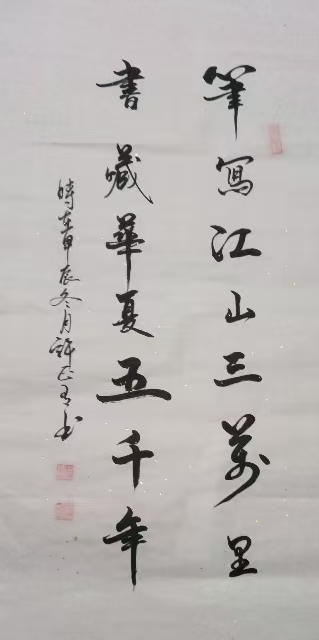 筆寫江山三萬里
書藏華夏五千年
時在甲辰冬月許正青书